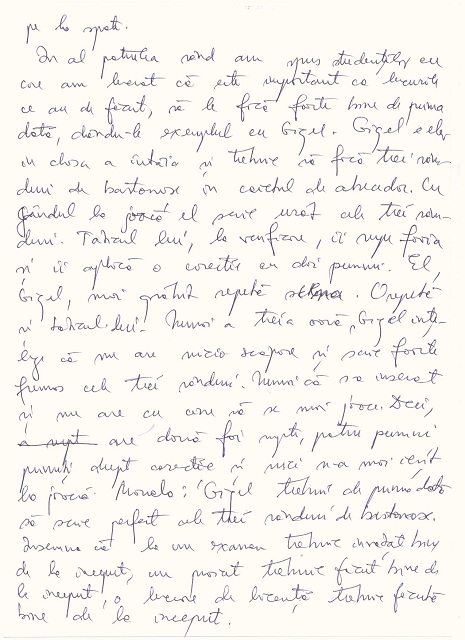 pe la spate.
In al patrulea rând am spus studenților cu
care am lucrat că este important ca lucrurile
ce au de făcut, să le facă foarte bine de prima
dată, dându-le exemplul cu Gigel. Gigel e elev
in clasa a întâia și trebuie să facă trei rân-
duri de bastonașe în caietul de abecedar. Cu
gândul la joacă el scrie urât cele trei rân-
duri. Tatăl lui, la verificare, îi rupe foaia
și îi aplică o corecție cu doi pumni. El,
Gigel, mai grăbit repetă scrierea. O repetă
și tatăl lui. Numai a treia oară, Gigel înțe-
lege că nu are nicio scăpare și scrie foarte
frumos cele trei rânduri. Numai că s-a înserat
și nu are cu cine să se mai joace. Deci,
a rupt are două foi rupte, patru pumni
primiți drept corecție și nici n-a mai ieșit
la joacă. Morala: Gigel trebuie de prima dată
să scrie perfect cele trei rânduri de bastonașe.
Înseamnă că la un examen trebuie învățat bine
de la început, un proiect trebuie făcut bine de
la început, o lucrare de licență trebuie făcută
bine de la început.